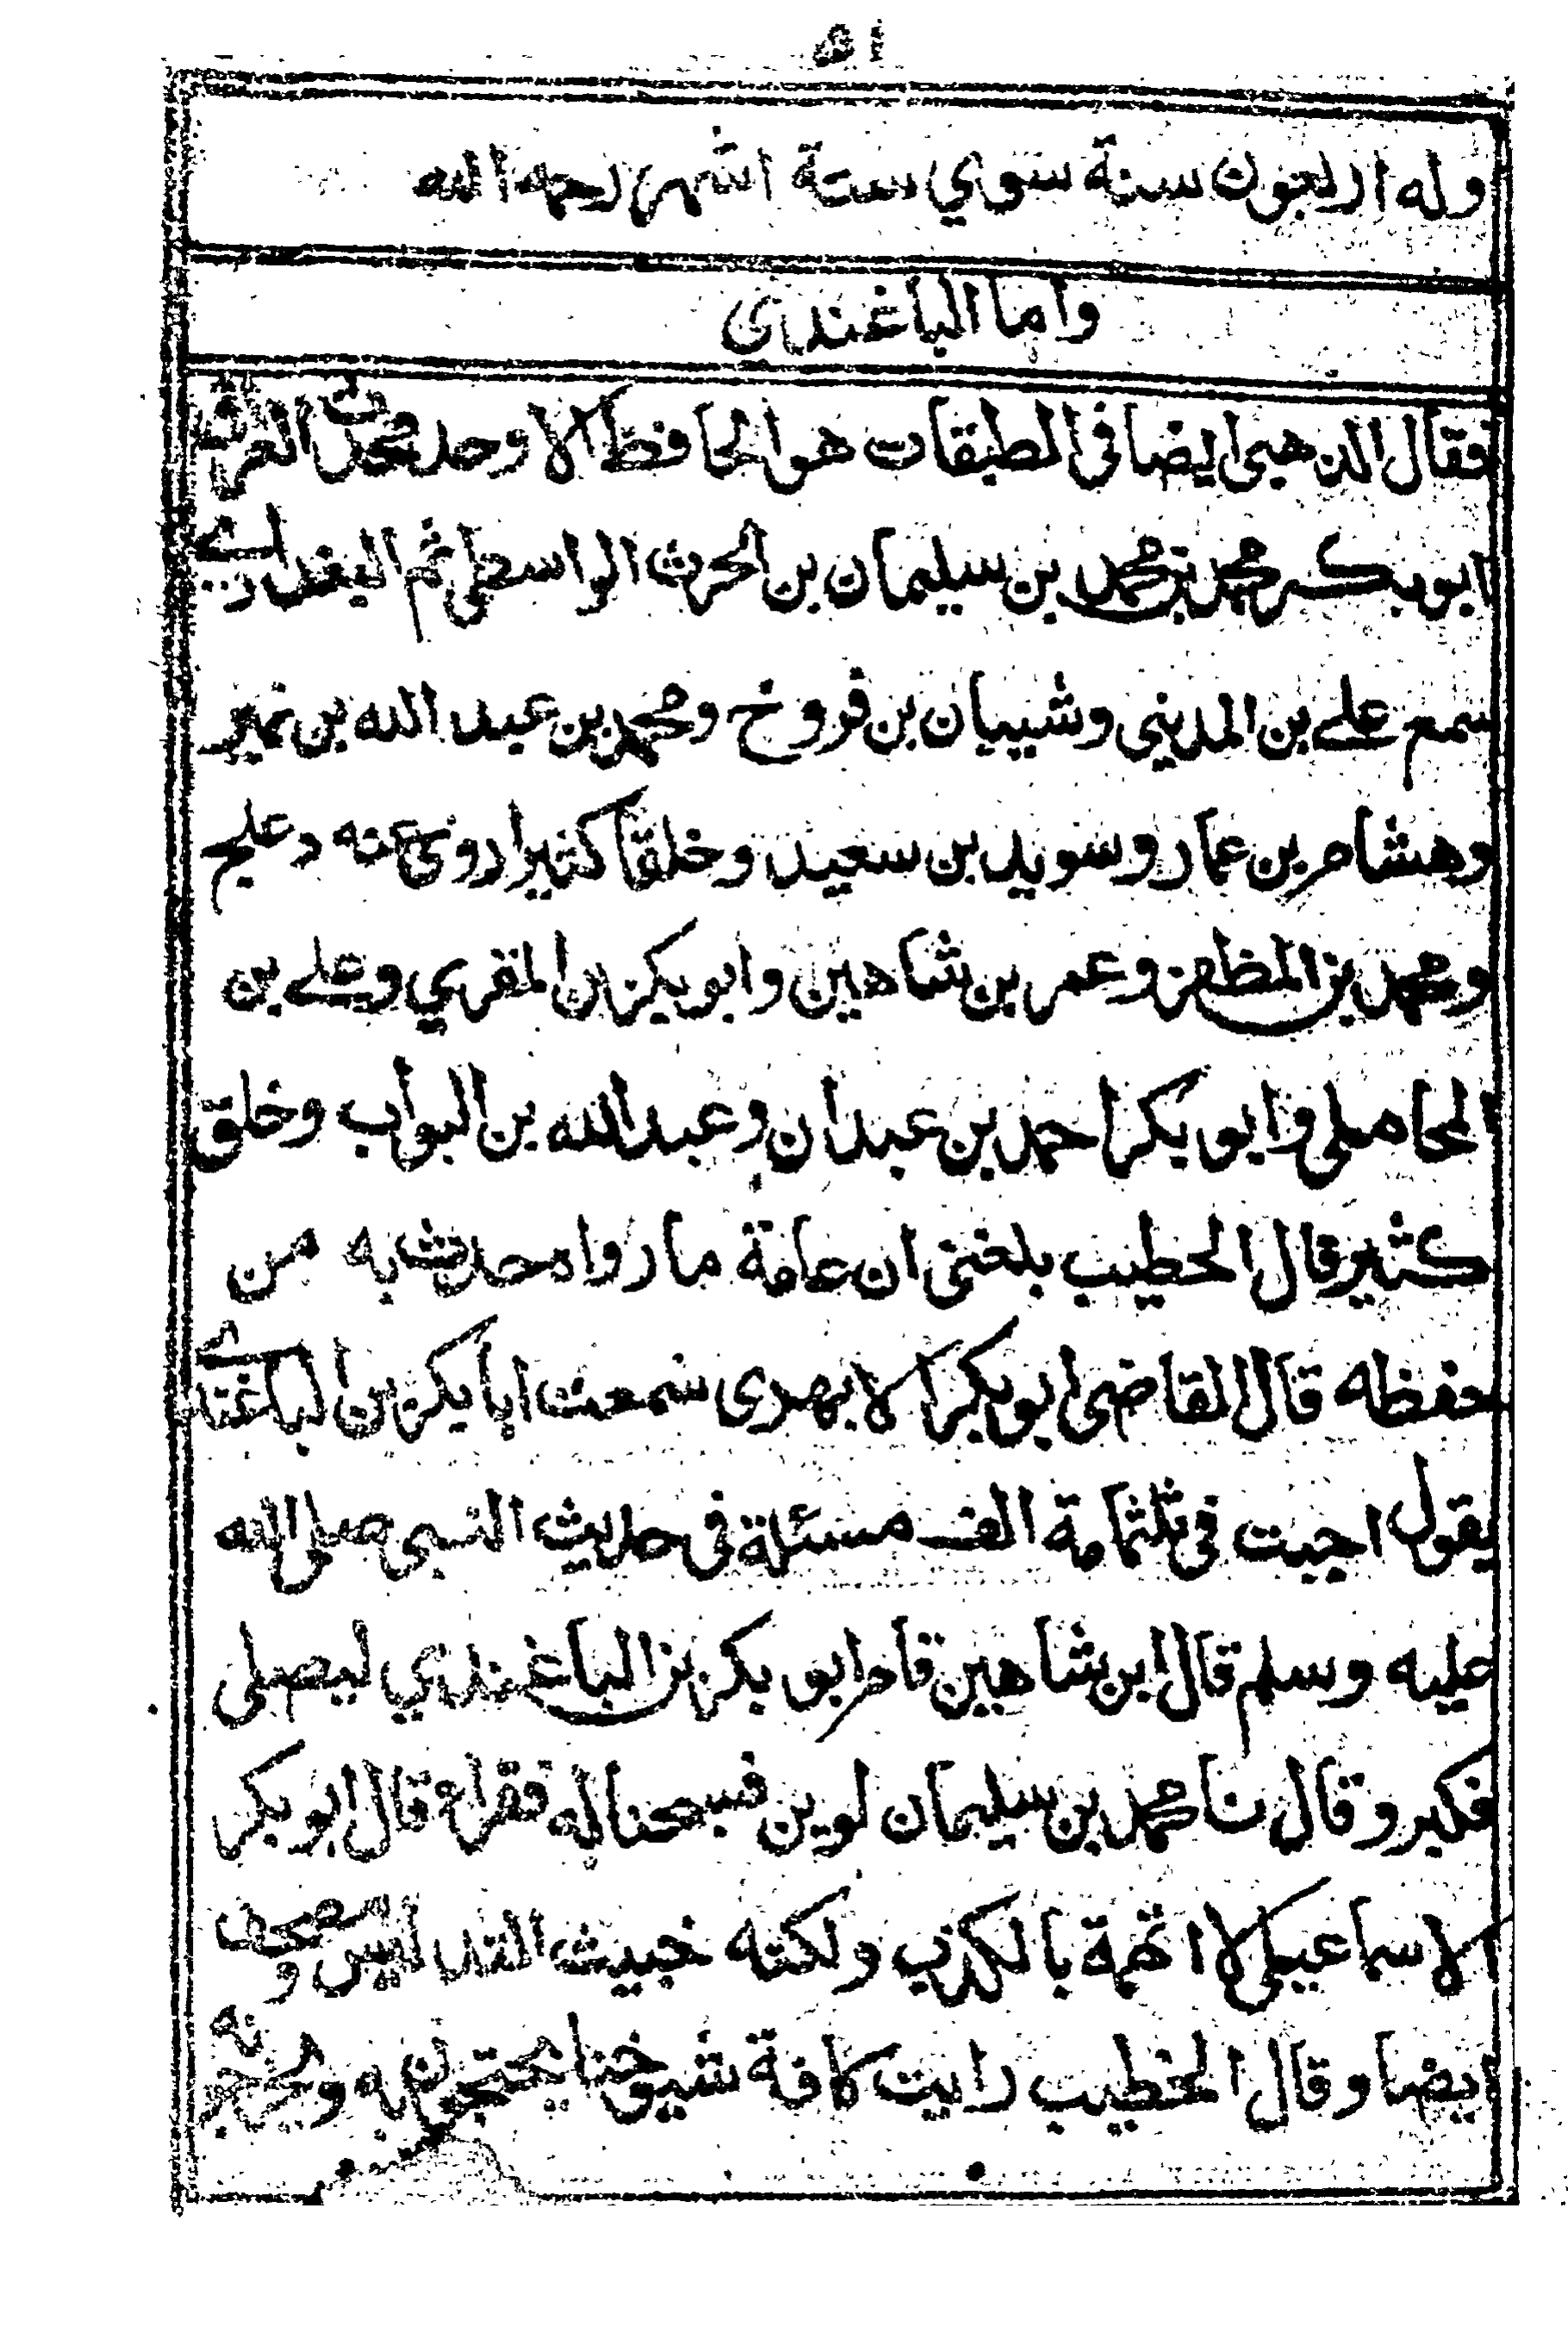 ٥١
وله اربعون سنة سوي ستة اشهر رحمه الله
واما الباغندى
فقال الذهبى ايضا فى الطبقات هو الحافظ الاوحد محدث العراق
ابو بكر محمد بن محمد بن سليمان بن الحرث الواسطى ثم البغدادي
سمع علے بن المدينى وشيبان بن فروخ ومحمد بن عبد الله بن نمير
وهشام بن عمار وسويد بن سعيد وخلقا كثيرا روى عنه دعلج
ومحمد بن المظفر وعمر بن شاهين وابو بكر بن المقري وعلے بن
المحاملى وابو بكر احمد بن عبدان وعبد الله بن البواب وخلق
كثير قال الخطيب بلغنى ان عامة ما رواه حدث به من
حفظه قال القاضى ابو بكر الابهرى سمعت ابا بكر بن الباغندے
يقول اجبت فى ثلثمامة الف مسئلة فى حديث النبى صلى الله
عليه وسلم قال ابن شاهين قام ابو بكر بن الباغندي ليصلى
فكبر وقال نا محمد بن سليمان لوين فسبحنا له فقراء قال ابو بكر
الاسماعيلى لا اتهمة بالكذب ولكنه خبيث التدليس ومصحف
ايضا وقال الخطيب رايت كافة شيوخنا يحتجون به ويخرجونه